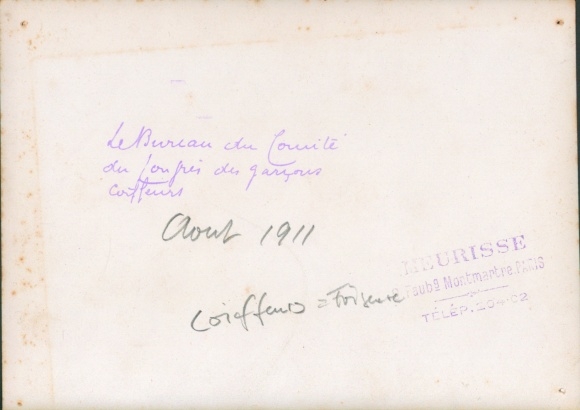 Le Bureau du Comité
du Congrès des garçons
coiffeurs
Aout 1911
MEURISSE
Faubg Montmartre. PARIS
Coiffeurs =
TÉLÉP.